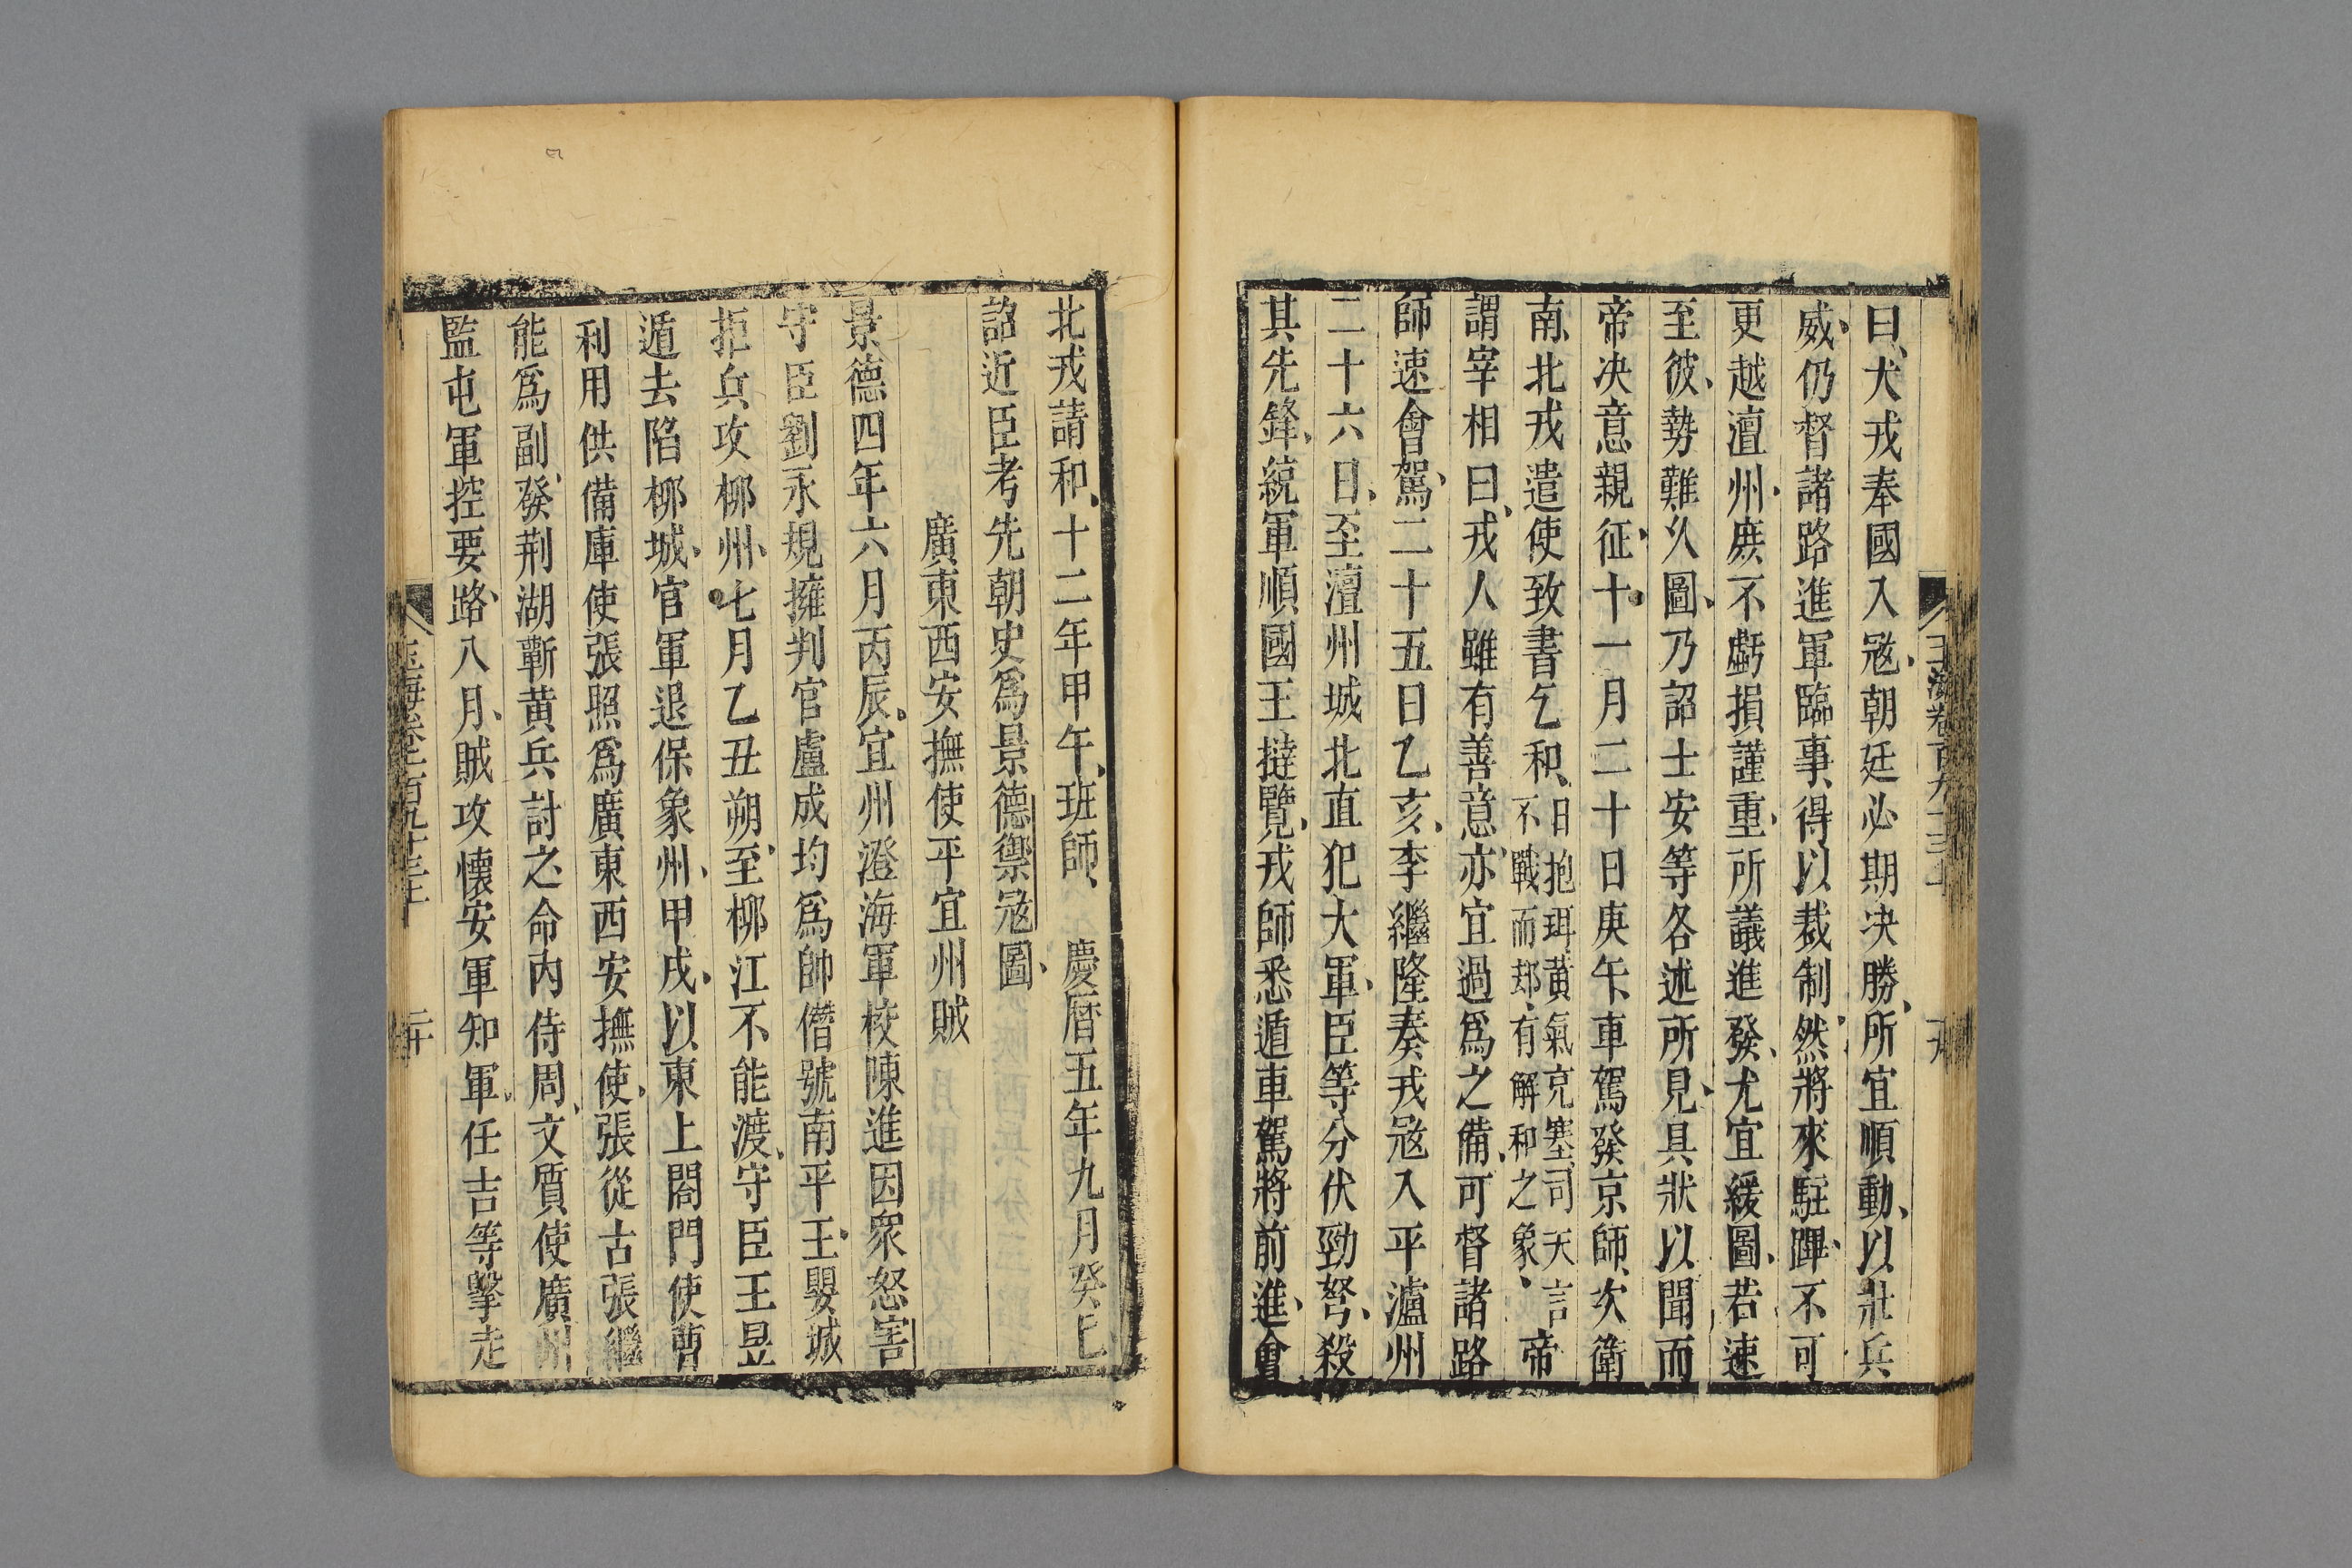 曰犬戎奉國入寇朝廷必期决勝所宜順動以壯兵
威仍督諸路進軍臨事得以裁制然將來駐蹕不可
更越澶州庶不虧損謹重所議進發尤宜緩圖若速
至彼勢難久圖乃詔士安等各述所見具狀以聞而
帝决意親征十一月二十日庚午車駕發京師次衛
南北戎遣使致書乞和日抱珥黄氣充塞司天言
不戰而郄有解和之象帝
謂宰相曰戎人雖有善意亦宜過爲之備可督諸路
師速會駕二十五日乙亥李繼隆奏戎寇入平瀘州
二十六日至澶州城北直犯大軍臣等分伏勁弩殺
其先鋒統軍順國王撻覽戎師悉遁車駕將前進會
北戎請和十二年甲午班師 慶曆五年九月癸巳
詔近臣考先朝史爲景德禦寇圖
廣東西安撫使平宜州賊
景德四年六月丙辰宜州澄海軍校陳進因衆怒害
守臣劉永規擁判官盧成均爲帥僭號南平王嬰城
拒兵攻栁州七月乙丑朔至栁江不能渡守臣王昱
遁去陷栁城官軍退保象州甲戌以東上閤門使曹
利用供備庫使張照爲廣東西安撫使張從古張繼
能爲副發荆湖蘄黄兵討之命内侍周文質使廣州
監屯軍控要路八月賊攻懷安軍知軍任吉等擊走
玉海卷一百九十三上 二十